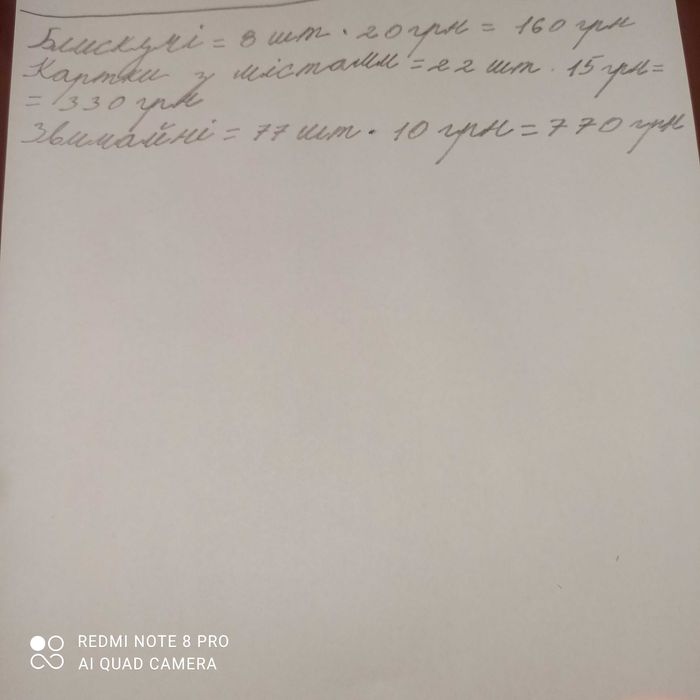 Блискучі = 8 шт · 20 грн = 160 грн
Картки з містами = 22 шт · 15 грн =
= 330 грн
Звичайні = 77 шт · 10 грн = 770 грн
REDMI NOTE 8 PRO
AI QUAD CAMERA